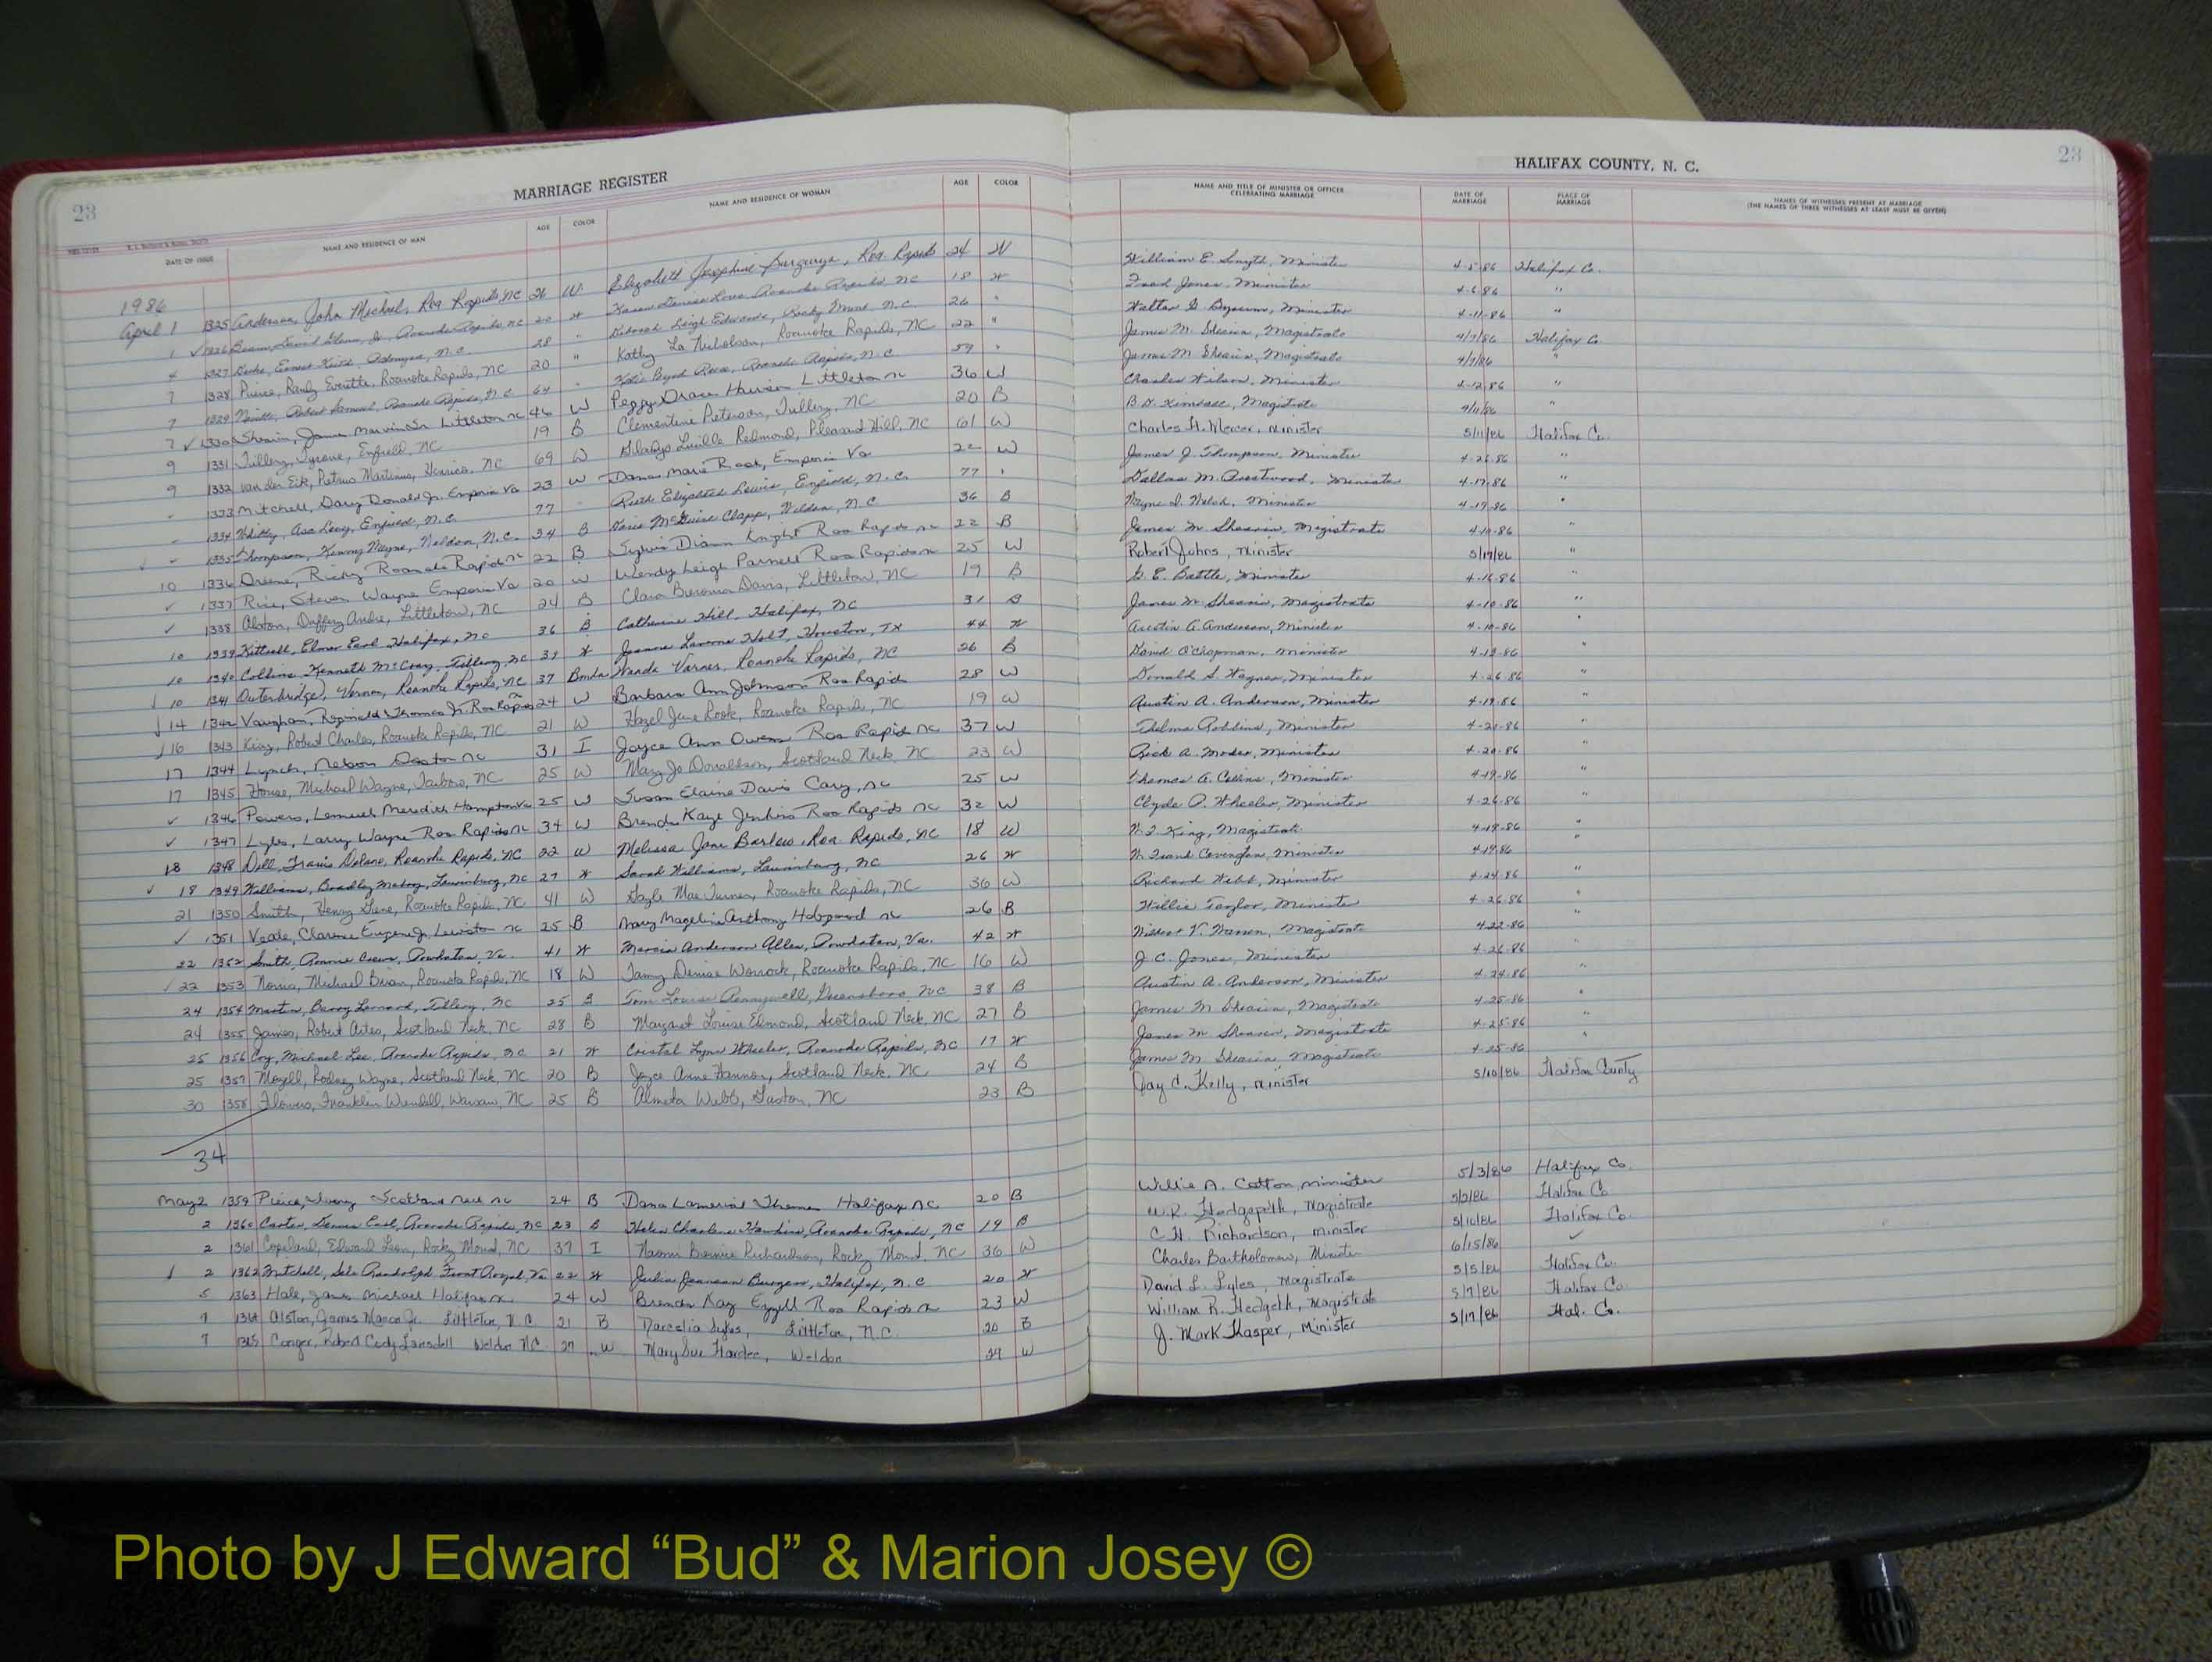 23
MARRIAGE REGISTER
HALIFAX COUNTY, N. C.
23
DATE OF ISSUE NAME AND RESIDENCE OF MAN AGE COLOR NAME AND RESIDENCE OF WOMAN AGE COLOR NAME AND TITLE OF MINISTER OR OFFICER CELEBRATING MARRIAGE DATE OF MARRIAGE PLACE OF MARRIAGE NAMES OF WITNESSES PRESENT AT MARRIAGE (THE NAMES OF THREE WITNESSES AT LEAST MUST BE GIVEN)
1986
April 1 1325 Anderson, John Michael, Roa Rapids, NC 26 W Elizabeth Josephine Roa Rapids 24 W William E. Smyth, Minister 4-5-86 Halifax Co.
1 ✓ 1326 David Glenn, Jr., Roanoke Rapids, NC 20 W Karen Denise Love, Roanoke Rapids, NC 18 W Fred Jones, Minister 4-6-86 "
4 1327 Ernest Keith, N.C. 28 " Deborah Leigh Edwards, Rocky Mount, N.C. 26 " Walter G. Minister 4-11-86 "
7 1328 Pierce, Randy Everette, Roanoke Rapids, NC 20 " Kathy La Nicholson, Roanoke Rapids, NC 22 " James M. Shearin, Magistrate 4/7/86 Halifax Co.
7 1329 Robert Samuel, Roanoke Rapids, N.C. 64 Katie Byrd Roanoke Rapids, N.C. 59 " James M Shearin, Magistrate 4/7/86 "
7 ✓ 1330 Shearin, James Marvin Sr Littleton nc 46 W Peggy Littleton nc 36 W Charles Wilson, Minister 4-12-86 "
9 1331 Tillery, Tyrone, Enfield, NC 19 B Clementine Peterson, Tillery, NC 20 B Magistrate 4/11/86 "
9 1332 van der Eik, Petrus Martinus, Henrico, NC 69 W Gladys Lucille Redmond, Pleasant Hill, NC 61 W Charles H. Mercer, Minister 5/11/86 Halifax Co.
1333 Mitchell, Davy Donald Jr. Emporia Va 23 W Dana Marie Rook, Emporia Va 22 W James J. Thompson, Minister 4-26-86 "
1334 Whitley, Asa Levy, Enfield, N.C. 77 Ruth Elizabeth Lewis, Enfield, N.C. 77 " Dallas M. Minister 4-17-86 "
1335 Thompson, Kenny Wayne, Weldon, N.C. 34 B McGuire Clapp, Weldon, N.C 36 B Wayne D. Welch, Minister 4-19-86 "
10 1336 Greene, Ricky Roanoke Rapids nc 22 B Sylvia Diann Knight Roa Rapids nc 22 B James M Shearin, Magistrate 4-10-86 "
✓ 1337 Rice, Steven Wayne Emporia Va 20 W Wendy Leigh Parnell Roa Rapids nc 25 W Robert Johns, Minister 5/17/86 "
✓ 1338 Alston, Duffery Andre, Littleton, NC 24 B Clara Davis, Littleton, NC 19 B G. E. Battle, Minister 4-16-86 "
10 1339 Kittrell, Elmer Earl Halifax, NC 36 B Catherine Hill, Halifax, NC 31 B James M. Shearin, Magistrate 4-10-86 "
10 1340 Collins, Kenneth McCray, Tillery, NC 39 W Jeanne Holt, Houston, TX 44 W Austin A. Anderson, Minister 4-10-86 "
10 1341 Outerbridge, Vernon, Roanoke Rapids, NC 37 Wanda Varner, Roanoke Rapids, NC 26 B David O'Chapman, Minister 4-13-86 "
14 1342 Vaughan, Reginald Thomas Jr. Roa Rapids 24 W Barbara Ann Johnson Roa Rapids 28 W Donald S. Wagner, Minister 4-26-86 "
16 1343 King, Robert Charles, Roanoke Rapids, NC 21 W Hazel Jane Rook, Roanoke Rapids, NC 19 W Austin A. Anderson, Minister 4-19-86 "
17 1344 Lynch, Nelson Gaston nc 31 I Joyce Ann Owens Roa Rapids nc 37 W Thelma Robbins, Minister 4-20-86 "
17 1345 House, Michael Wayne, Tarboro, NC 25 W Mary Jo Donaldson, Scotland Neck, NC 23 W Rick A. Minister 4-20-86 "
✓ 1346 Powers, Lemuel Meredith Hampton Va 25 W Susan Elaine Davis Cary, nc 25 W Thomas A. Collins, Minister 4-19-86 "
✓ 1347 Lyles, Larry Wayne Roa Rapids nc 34 W Brenda Kaye Jenkins Roa Rapids nc 32 W Clyde O. Wheeler, Minister 4-26-86 "
18 1348 Dell, Travis Delano, Roanoke Rapids, NC 22 W Melissa Jane Barlow, Roa. Rapids, NC 18 W King, Magistrate 4-18-86 "
✓ 18 1349 Williams, Bradley Laurinburg, NC 27 W Sarah Williams, Laurinburg, NC 26 W Frank Covington, Minister 4-19-86 "
21 1350 Smith, Henry Gene, Roanoke Rapids, NC 41 W Gayle Mae Turner, Roanoke Rapids, NC 36 W Richard Webb, Minister 4-24-86 "
✓ 1351 Veale, Clarence Eugene Jr. Lewiston nc 25 B Mary Mageline Anthony Hobgood nc 26 B Willie Taylor, Minister 4-26-86 "
22 1352 Smith, Ronnie Powhatan, Va. 41 W Marcia Anderson Allen, Powhatan, Va. 42 W Wilbert V. Warren, Magistrate 4-22-86 "
✓ 22 1353 Norris, Michael Brian, Roanoke Rapids, NC 18 W Tammy Denise Worrock, Roanoke Rapids, NC 16 W J. C. Jones, Minister 4-26-86 "
24 1354 Martin, Barry Leonard, Tillery, NC 25 B Louise Pennywell, Greensboro, NC 38 B Austin A. Anderson, Minister 4-24-86 "
24 1355 James, Robert Artes, Scotland Neck, NC 28 B Margaret Louise Edmond, Scotland Neck, NC 27 B James M Shearin, Magistrate 4-25-86 "
25 1356 Coy, Michael Lee, Roanoke Rapids, NC 21 W Cristal Lynn Wheeler, Roanoke Rapids, NC 17 W James M. Shearin, Magistrate 4-25-86 "
25 1357 Mozell, Rodney Wayne, Scotland Neck, NC 20 B Joyce Anne Hannon, Scotland Neck, NC 24 B James M. Shearin, Magistrate 4-25-86
30 1358 Flowers, Franklin Wendell, Warsaw, NC 25 B Almeta Webb, Gaston, NC 23 B Jay C. Kelly, Minister 5/10/86 Halifax County
34
May 2 1359 Pierce, Scotland Neck nc 24 B Dana Thomas Halifax nc 20 B Willie A. Cotton, minister 5/3/86 Halifax Co.
2 1360 Carter, Dennis Earl, Roanoke Rapids, NC 23 B Helen Charlene Hawkins, Roanoke Rapids, NC 19 B W.R. Hedgepeth, Magistrate 5/2/86 Halifax Co
2 1361 Copeland, Edward Leon, Rocky Mount, NC 37 I Naomi Bernice Richardson, Rocky Mount, NC 36 W C.H. Richardson, minister 5/10/86 Halifax Co.
✓ 2 1362 Mitchell, Randolph Front Royal, Va 22 W Julia Burgess, Halifax, N.C 20 W Charles Bartholomew, Minister 6/15/86 ✓
5 1363 Hale, James Michael Halifax nc 24 W Brenda Kay Ezzell Roa Rapids nc 23 W David L. Lyles, Magistrate 5/5/86 Halifax Co.
7 1364 Alston, James Jr. Littleton, N.C. 21 B Darcelia Sykes, Littleton, N.C. 20 B William R. Hedgeth, Magistrate 5/7/86 Halifax Co
7 1365 Conger, Robert Cody Lansdell Weldon NC. 27 W Mary Sue Hardee, Weldon 29 W J. Mark Kasper, Minister 5/17/86 Hal. Co.
Photo by J Edward “Bud” & Marion Josey ©